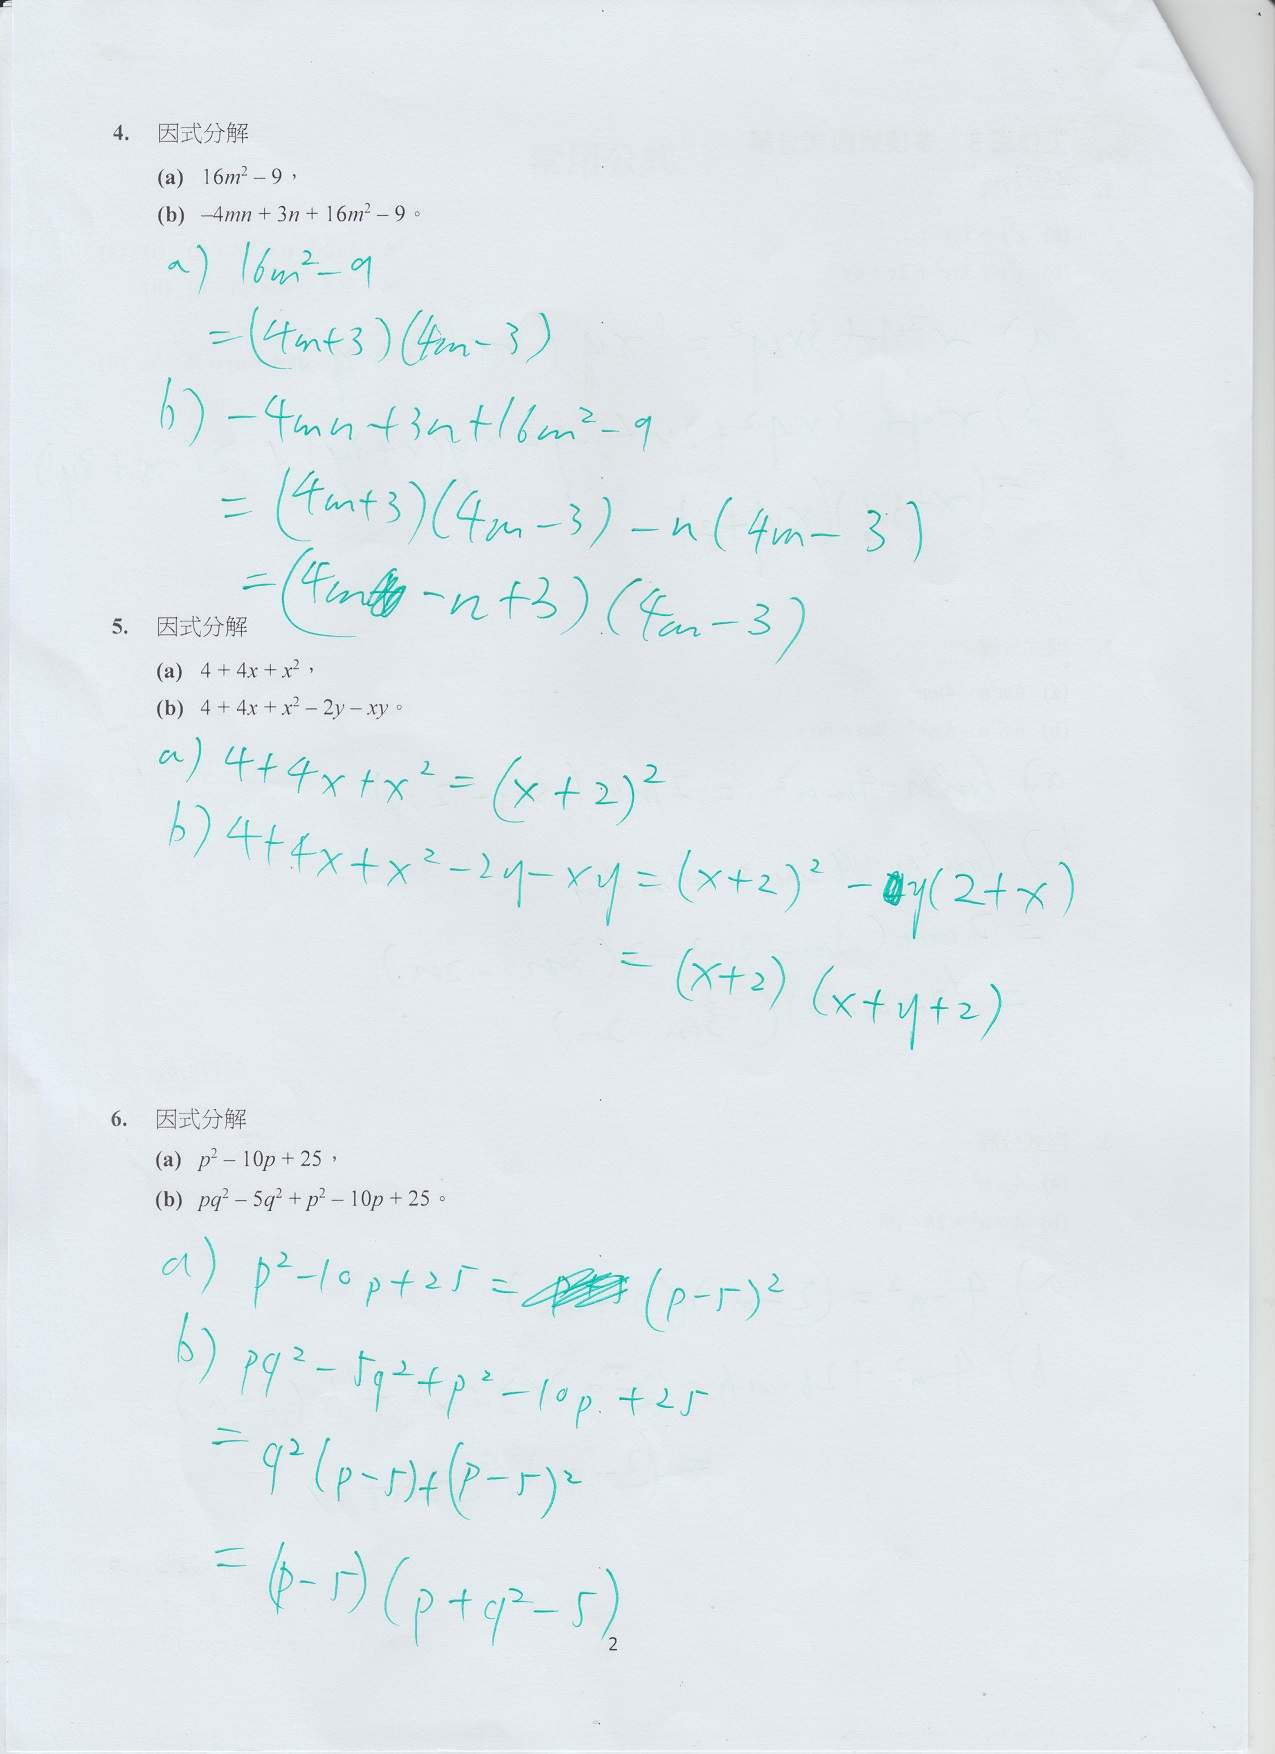 4. 因式分解
(a) 16m² – 9，
(b) –4mn + 3n + 16m² – 9。
a) 16m² – 9
= (4m+3)(4m–3)
b) –4mn+3n+16m²–9
= (4m+3)(4m–3) – n(4m–3)
= (4m –n+3)(4m–3)
5. 因式分解
(a) 4 + 4x + x²，
(b) 4 + 4x + x² – 2y – xy。
a) 4+4x+x² = (x+2)²
b) 4+4x+x²–2y–xy = (x+2)² – y(2+x)
= (x+2)(x+y+2)
6. 因式分解
(a) p² – 10p + 25，
(b) pq² – 5q² + p² – 10p + 25。
a) p²–10p+25 = (p–5)²
b) pq² – 5q²+p²–10p+25
= q²(p–5)+(p–5)²
= (p–5)(p+q²–5)
2